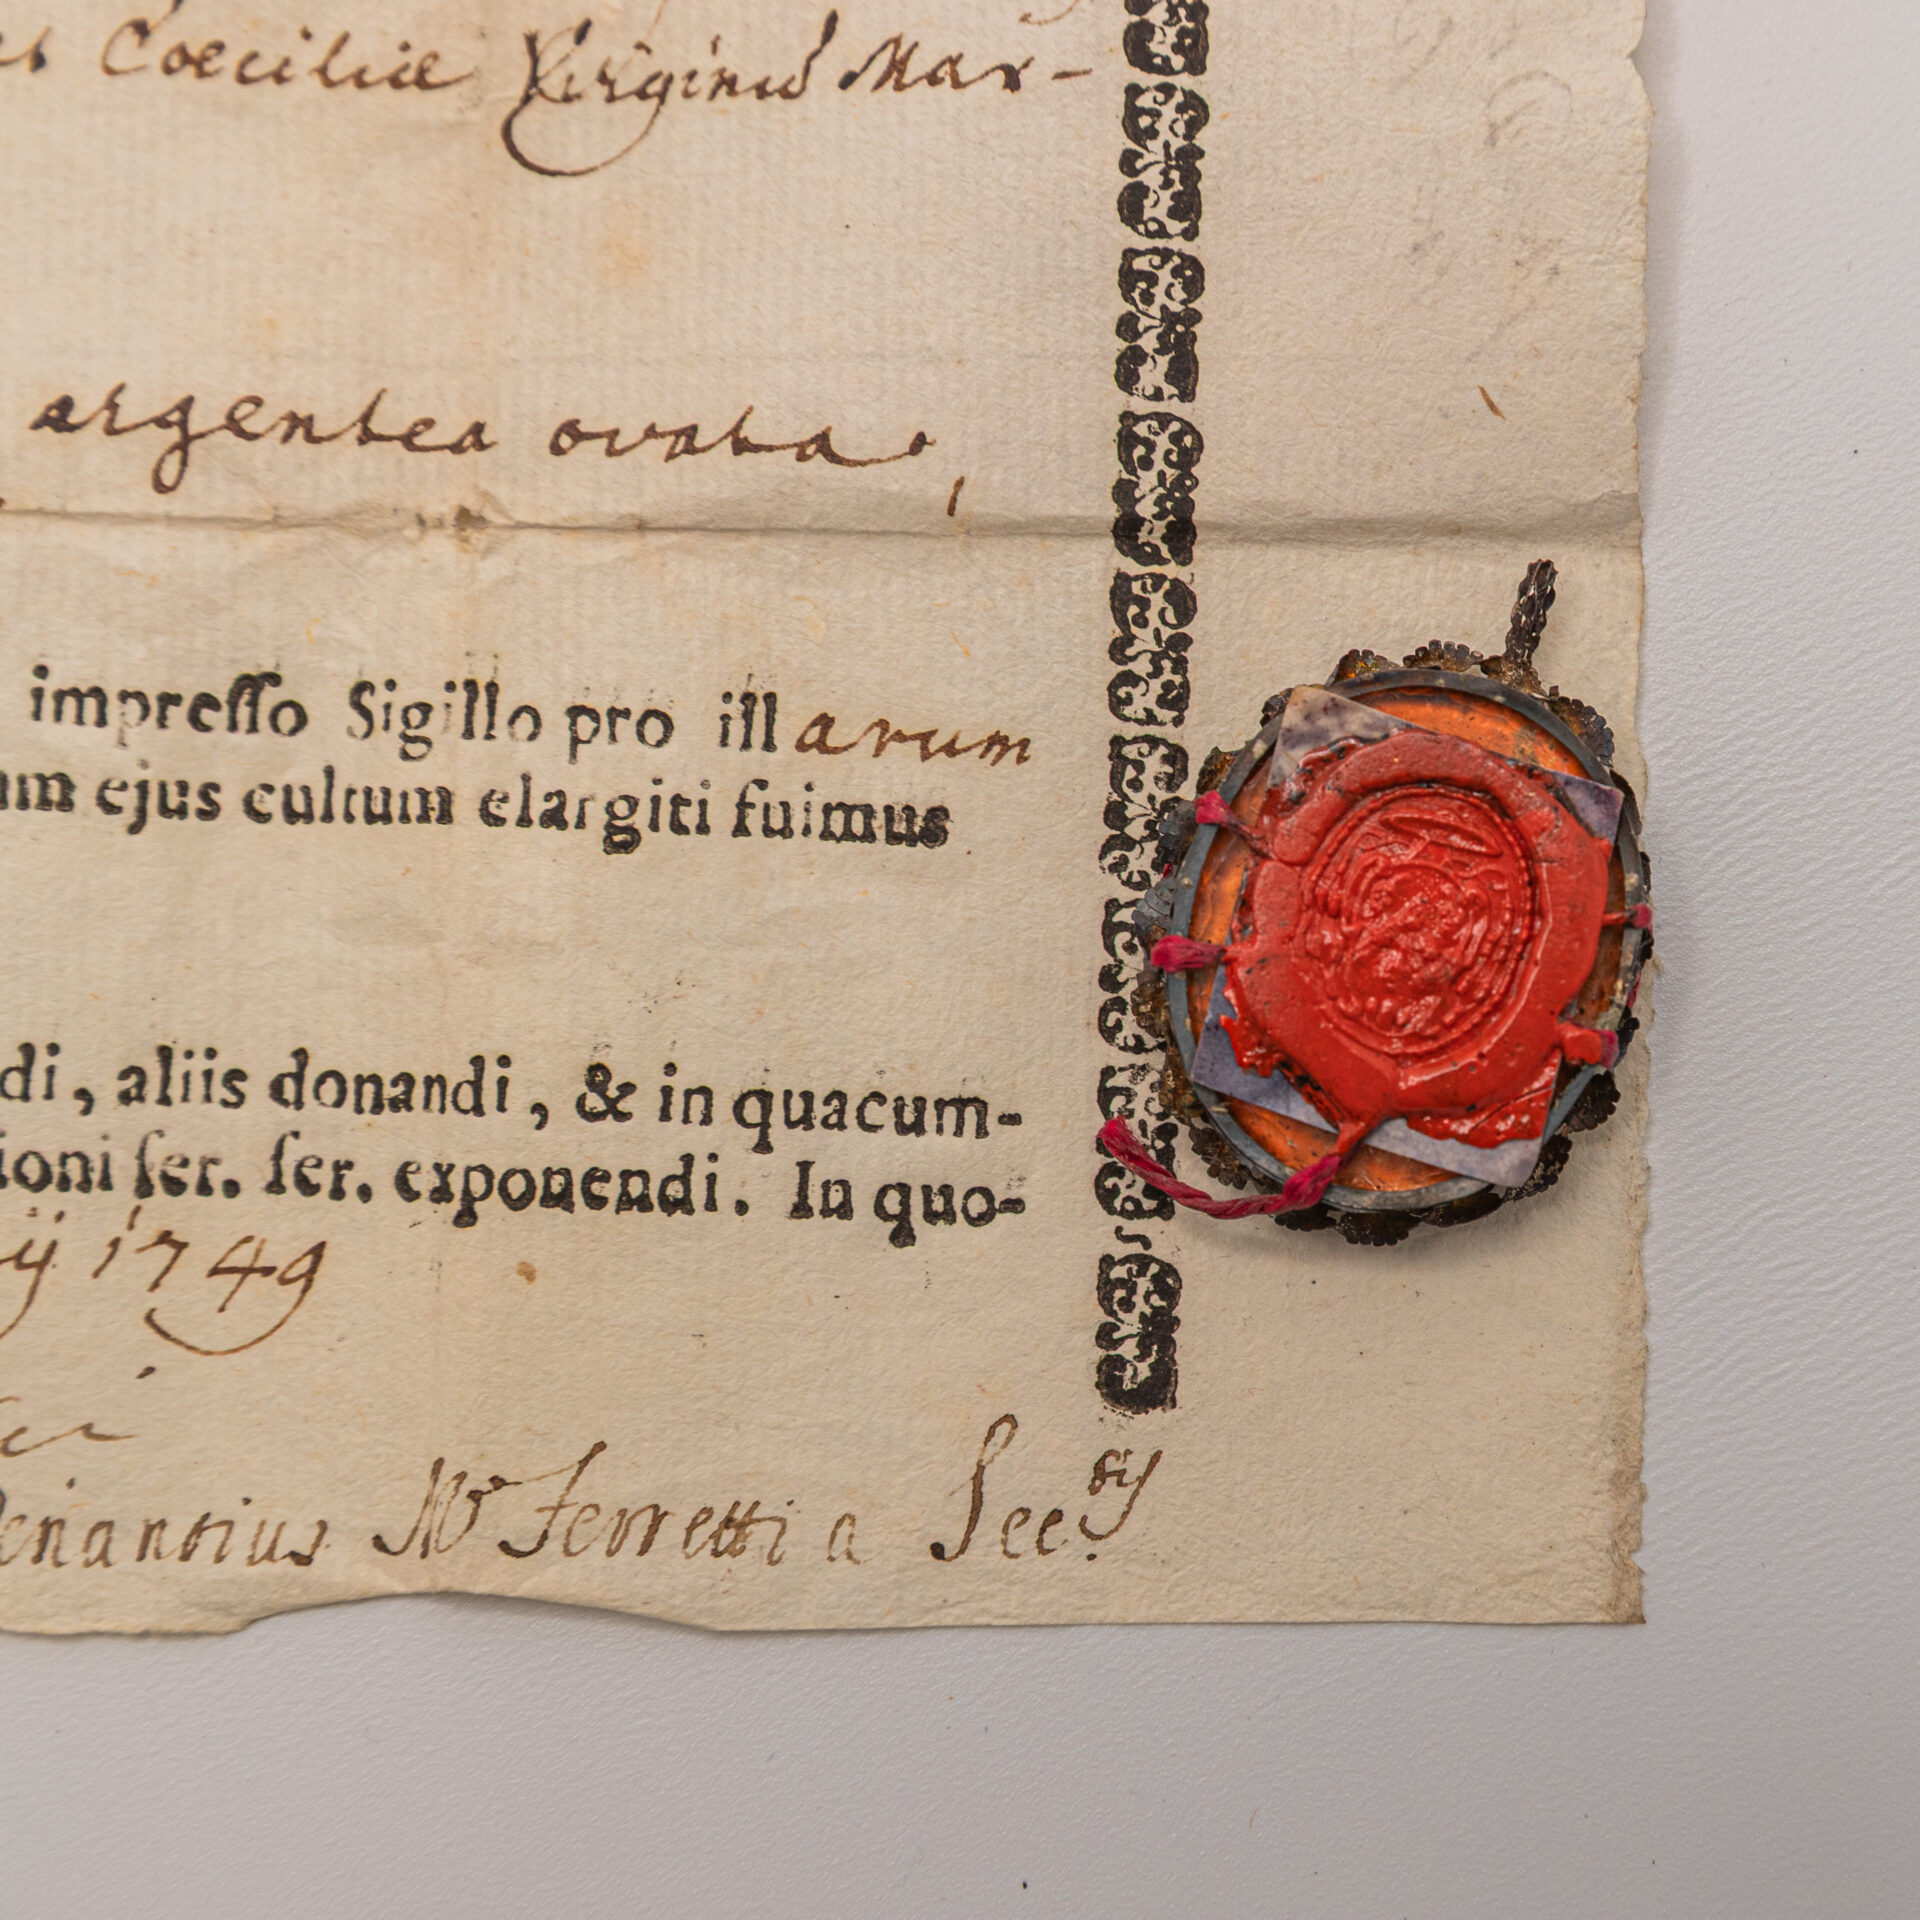 Coeciliæ Virginis Mar-
argentea ovata,
impreſſo Sigillo pro illarum
um ejus cultum elargiti fuimus
di, aliis donandi, & in quacum-
ioni ſer. ſer. exponendi. In quo-
ij 1749
enantius Mr Ferretti a Sec.ry